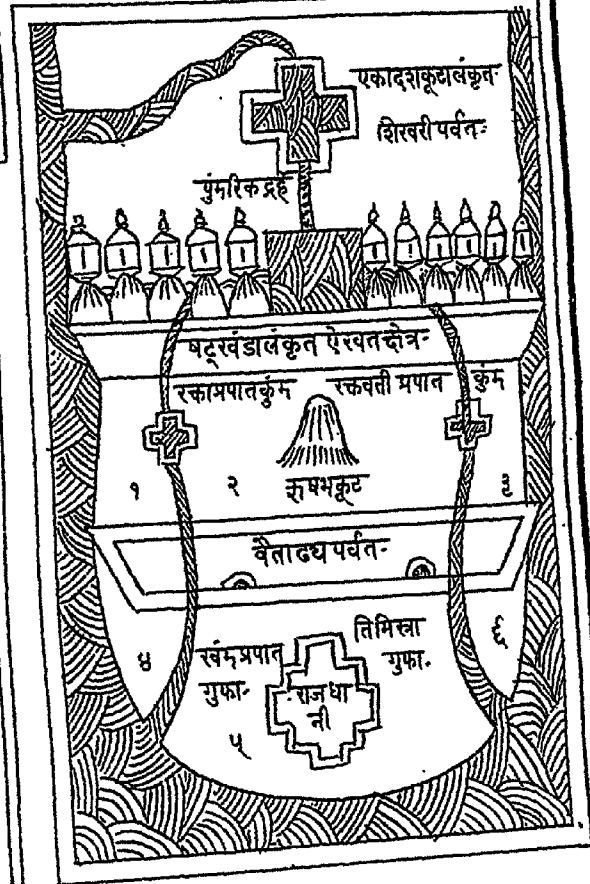 एकादशकूटालंकृत-
शिखरी पर्वतः
पुंमरिक द्रह
षट्खंडालंकृत ऐरवतक्षेत्र-
रक्ताप्रपातकुंम रक्तवती प्रपात कुंम
१ २ ऋषभकूट ३
वैताढ्य पर्वत-
४ खंमप्रपात तिमिस्त्रा ६
गुफा- गुफा-
राजधा
नी
५